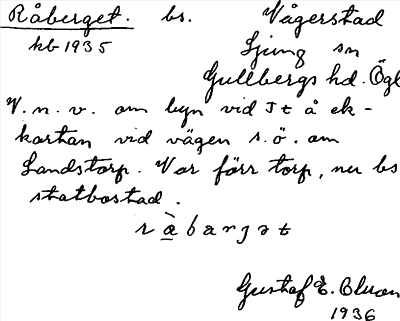 Råberget. bs. Vågerstad
kb 1935 Ljung sn
Gullbergs hd. Ögl
V. n. v. om byn vid J t å ek-
kartan vid vägen s. ö. om
Landstorp. Var förr torp, nu bs
statbostad.
r à̱ b a r g ə t
Gustaf E.
1936